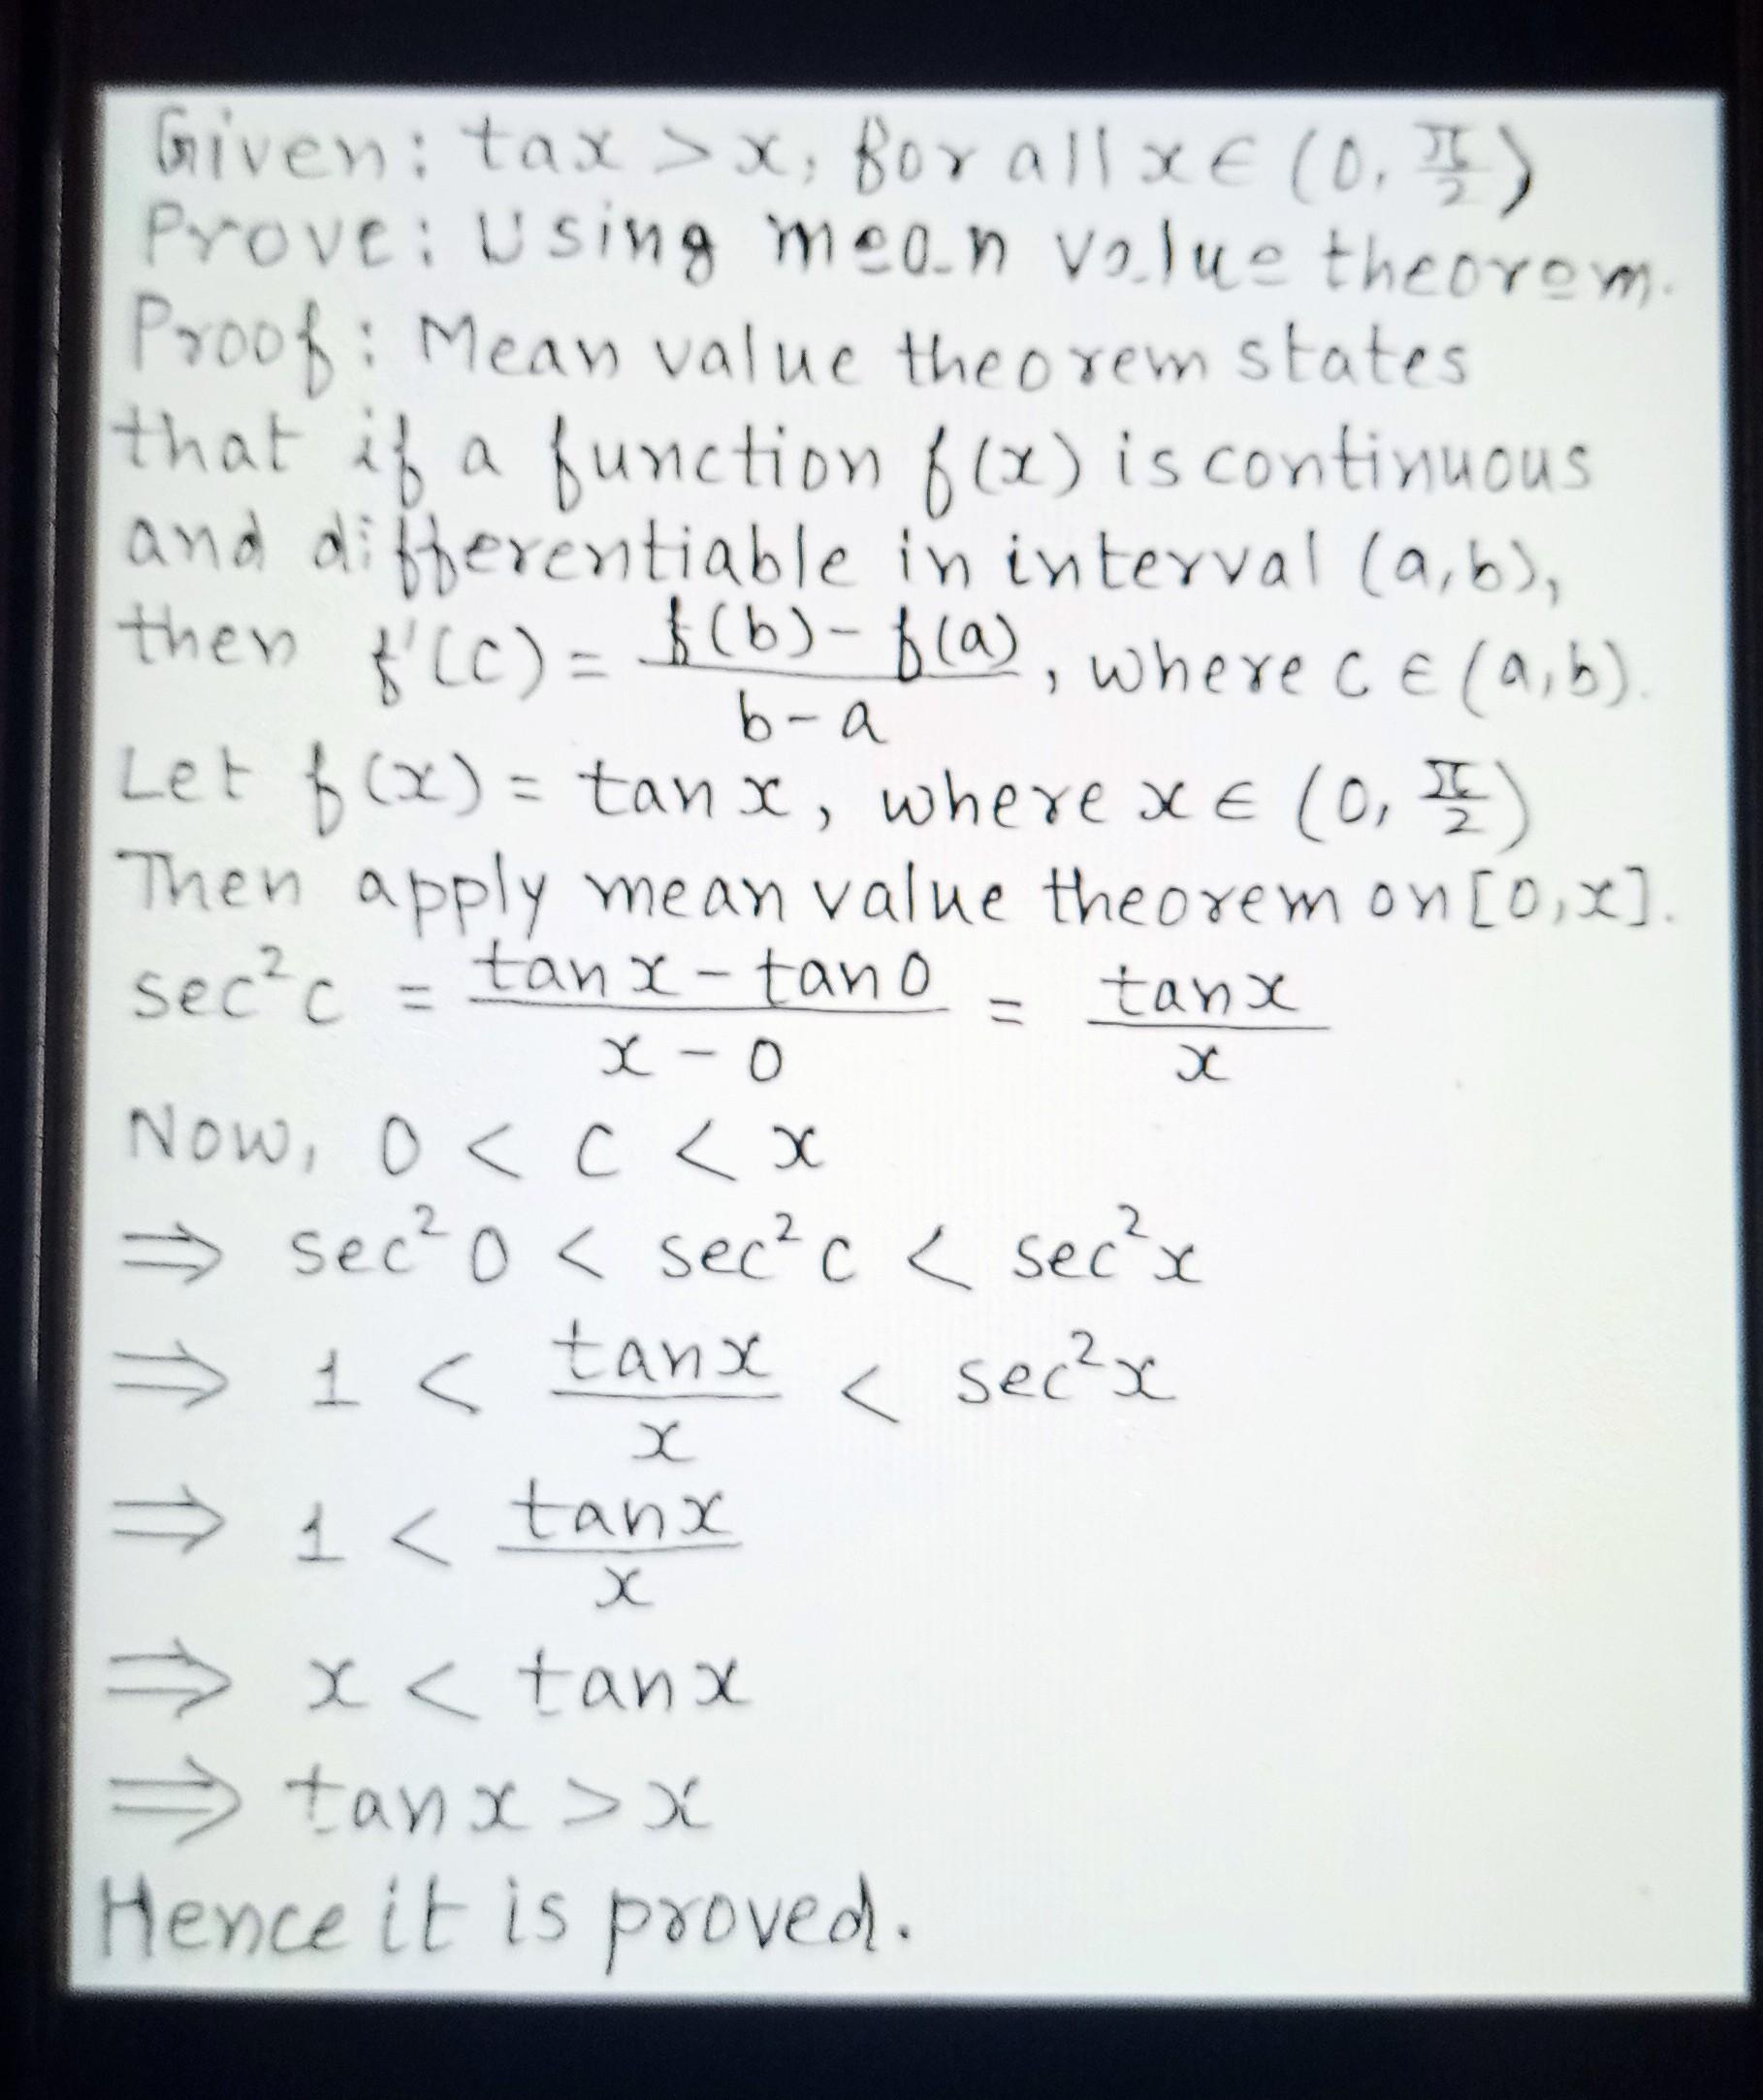 Given: tax > x, for all x ∈ (0, π/2)
Prove: Using mean value theorem.
Proof: Mean value theorem states
that if a function f(x) is continuous
and differentiable in interval (a,b),
then f'(c) = (f(b) - f(a))/(b - a), where c ∈ (a,b).
Let f(x) = tan x, where x ∈ (0, π/2)
Then apply mean value theorem on [0,x].
sec²c = (tan x - tan 0)/(x - 0) = tan x/x
Now, 0 < c < x
⇒ sec²0 < sec²c < sec²x
⇒ 1 < tan x/x < sec²x
⇒ 1 < tan x/x
⇒ x < tan x
⇒ tan x > x
Hence it is proved.